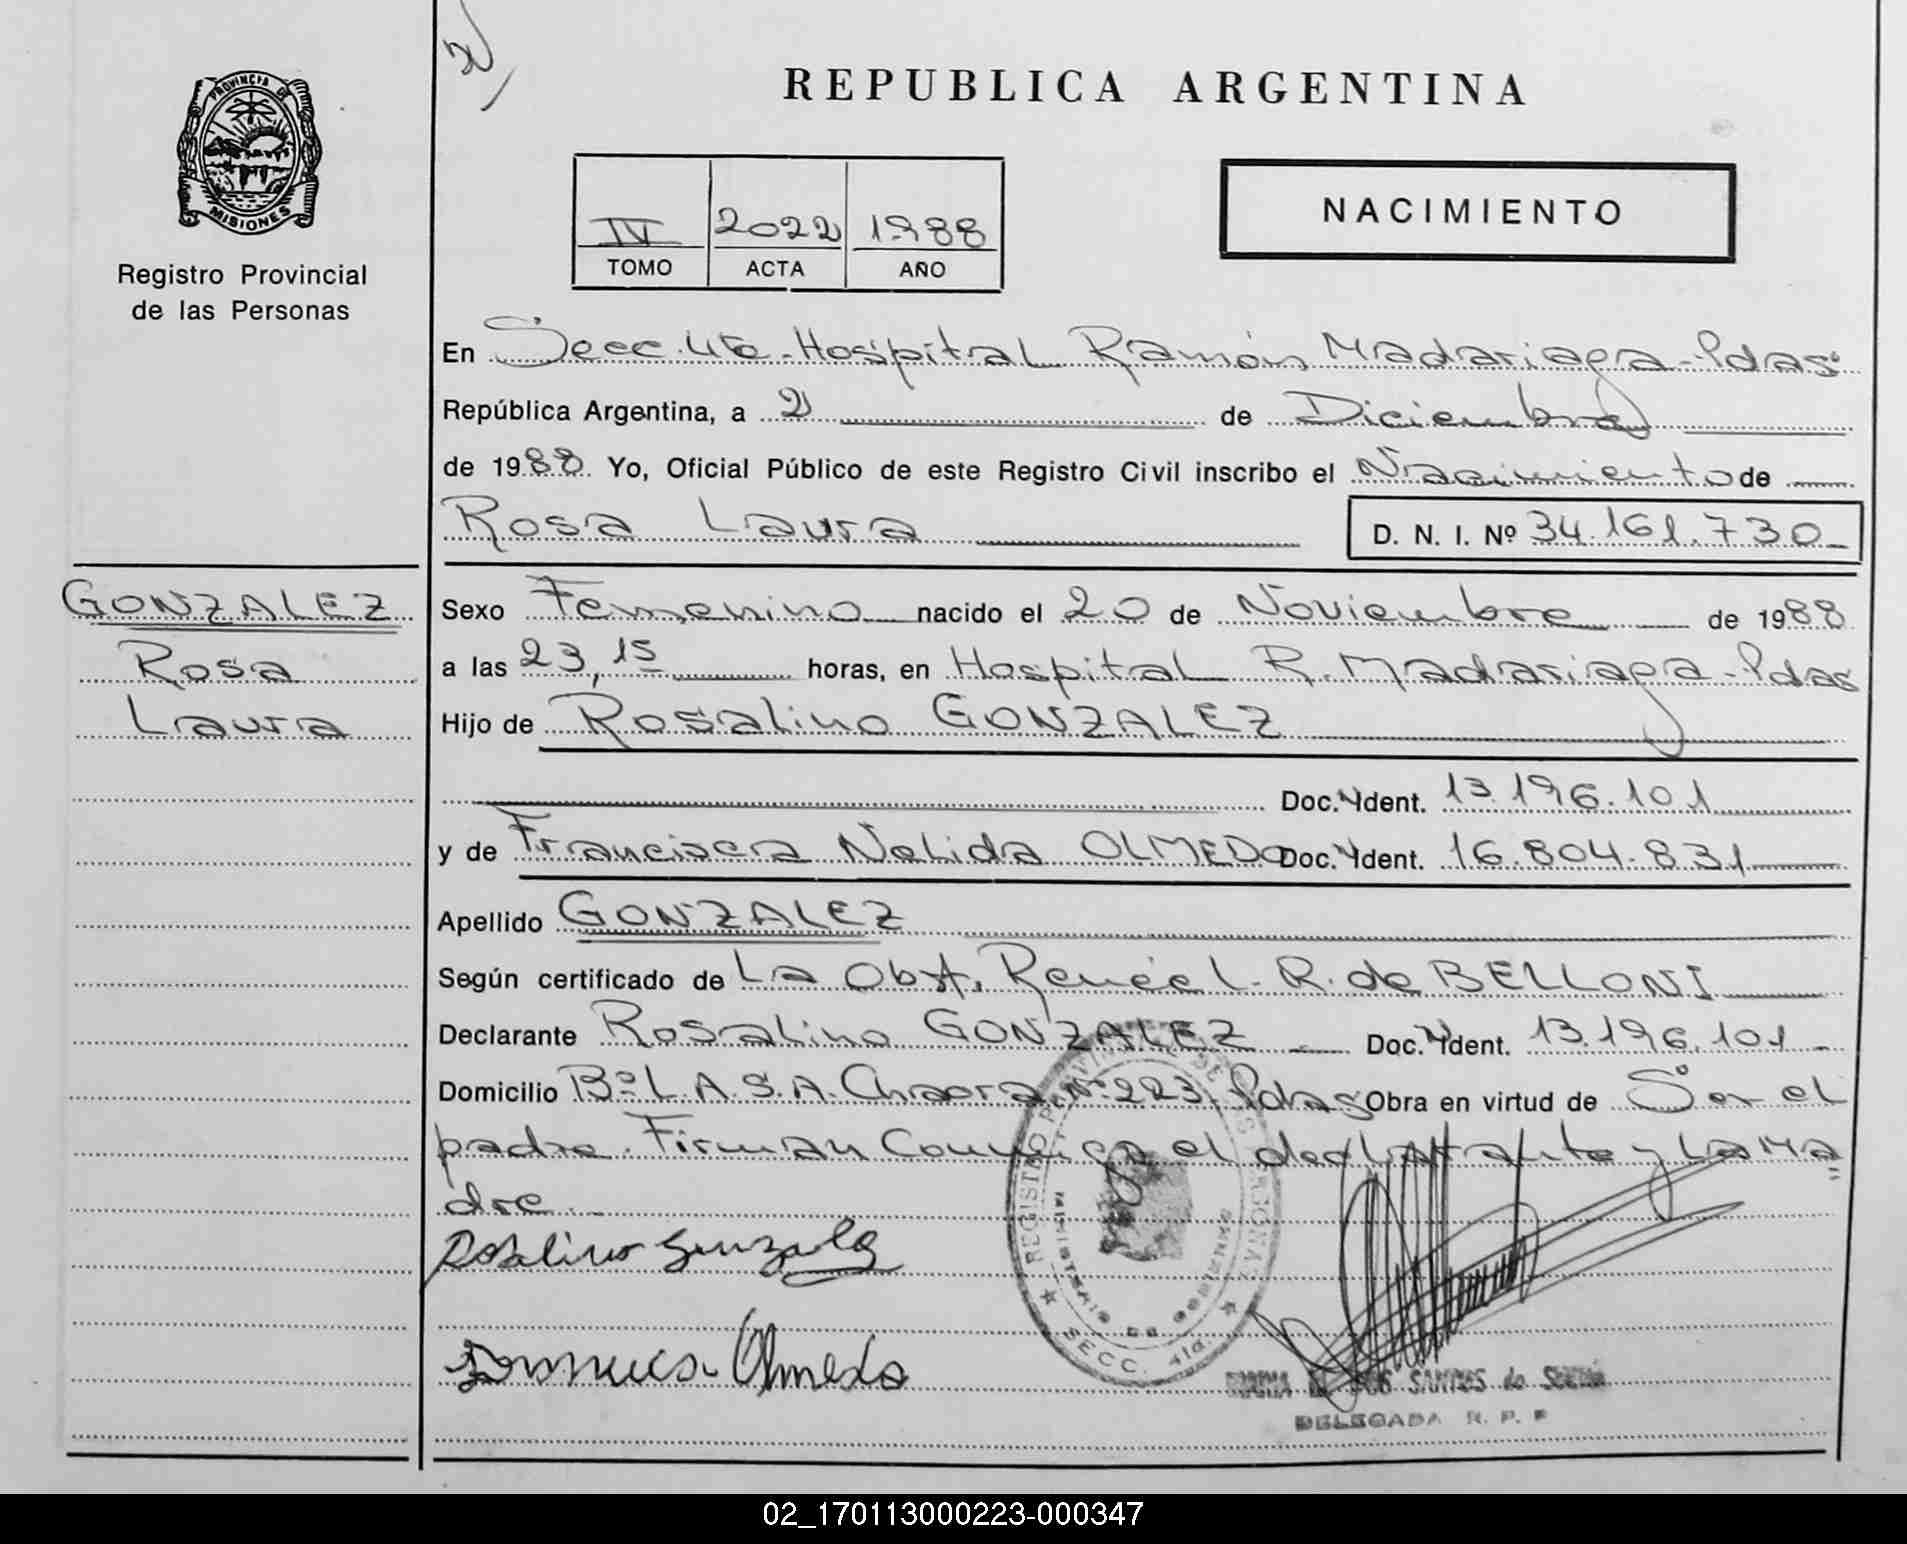 REPUBLICA ARGENTINA
PROVINCIA DE
MISIONES
Registro Provincial
de las Personas
IV 2022 1988
TOMO ACTA AÑO
NACIMIENTO
En Secc. 4ta. Hospital Ramón Madariaga - Pdas
República Argentina, a 2 de Diciembre
de 1988. Yo, Oficial Público de este Registro Civil inscribo el Nacimiento de
Rosa Laura D. N. I. Nº 34.161.730
GONZALEZ
Rosa
Laura
Sexo Femenino nacido el 20 de Noviembre de 1988
a las 23,15 horas, en Hospital R. Madariaga - Pdas
Hijo de Rosalino GONZALEZ
Doc. Ydent. 13.196.101
y de Francisca Nelida OLMEDO Doc. Ydent. 16.804.831
Apellido GONZALEZ
Según certificado de La Obst. Renée L. R. de BELLONI
Declarante Rosalino GONZALEZ Doc. Ydent. 13.196.101
Domicilio Bº L.A.S.A. Chacra Nº 223, Pdas Obra en virtud de Ser el
padre. Firman Conmigo el declarante y la Ma
dre.
Rosalino Gonzalez
Olmedo
REGISTRO PROVINCIAL DE LAS PERSONAS
MINISTERIO DE GOBIERNO
SECC. 4ta.
DOS SANTOS de
DELEGADA R. P. P
02_170113000223-000347